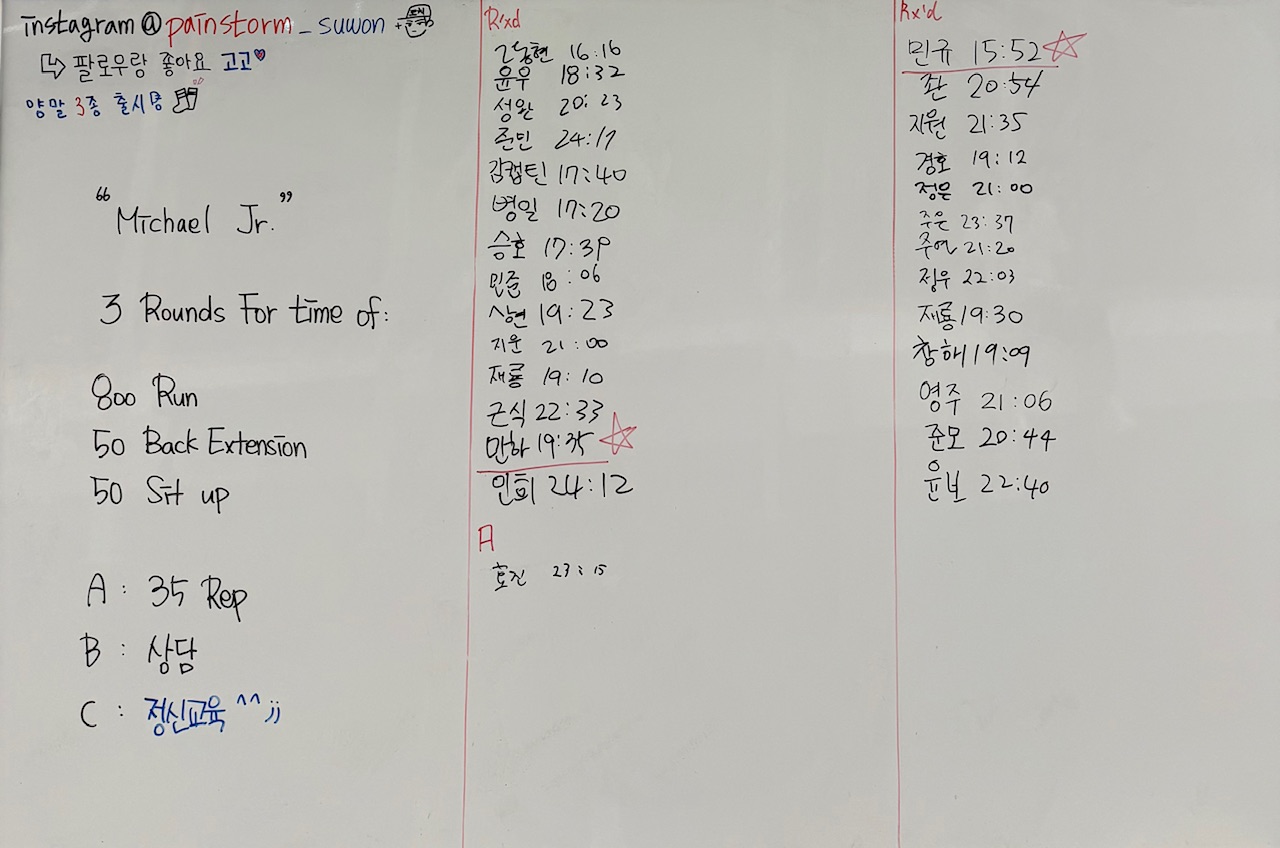 instagram @ painstorm_suwon
팔로우랑 좋아요 고고
양말 3종 출시중
"Michael Jr."
3 Rounds For time of:
800 Run
50 Back Extension
50 Sit up
A : 35 Rep
B : 상담
C : 정신교육 ^^ ;;
R'xd
16:16
윤우 18:32
성완 20:23
준민 24:17
캡틴 17:40
병일 17:20
승호 17:39
민준 18:06
상현 19:23
지운 21:00
재룡 19:10
근식 22:33
만하 19:35
인희 24:12
A
효진 23:15
Rx'd
민규 15:52
20:54
지원 21:35
경호 19:12
정은 21:00
주은 23:37
주연 21:20
정우 22:03
재룡 19:30
창해 19:09
영주 21:06
준모 20:44
윤보 22:40